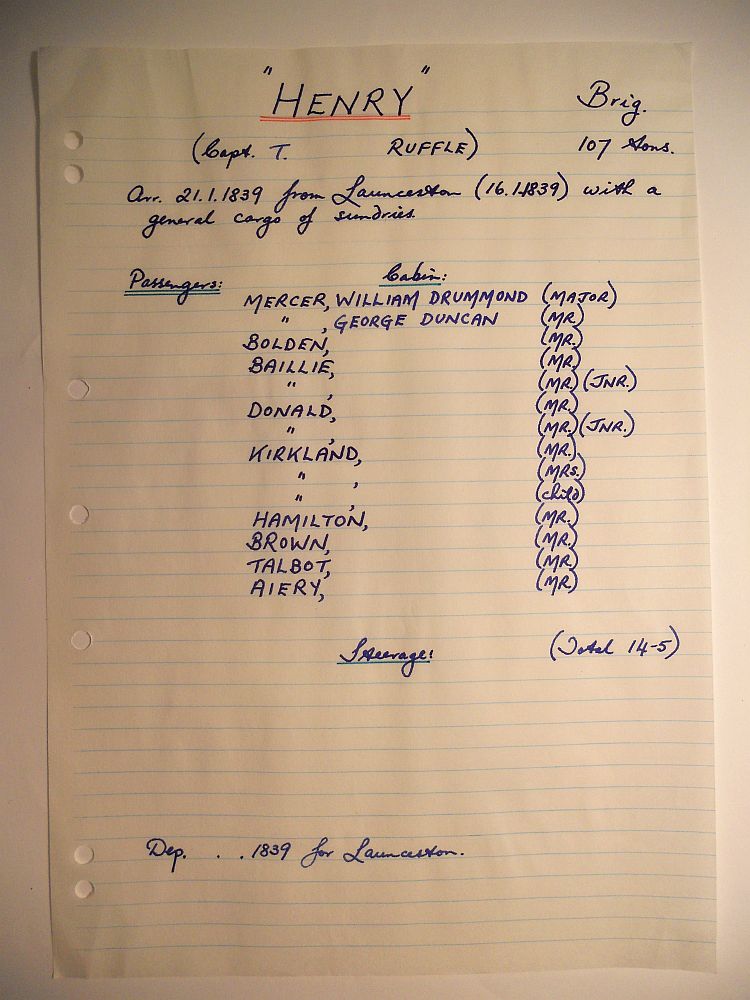 "HENRY" Brig.
(Capt. T. RUFFLE) 107 tons.
Arr. 21.1.1839 from Launceston (16.1.1839) with a
general cargo of sundries.
Passengers: Cabin:
MERCER, WILLIAM DRUMMOND (MAJOR)
" , GEORGE DUNCAN (MR.)
BOLDEN, (MR.)
BAILLIE, (MR)
" , (MR.) (JNR.)
DONALD, (MR.)
" , (MR.) (JNR.)
KIRKLAND, (MR.)
" , (MRS.)
" , (child)
HAMILTON, (MR.)
BROWN, (MR.)
TALBOT, (MR.)
AIERY, (MR.)
Steerage: (Total 14-5)
Dep. . . 1839 for Launceston.